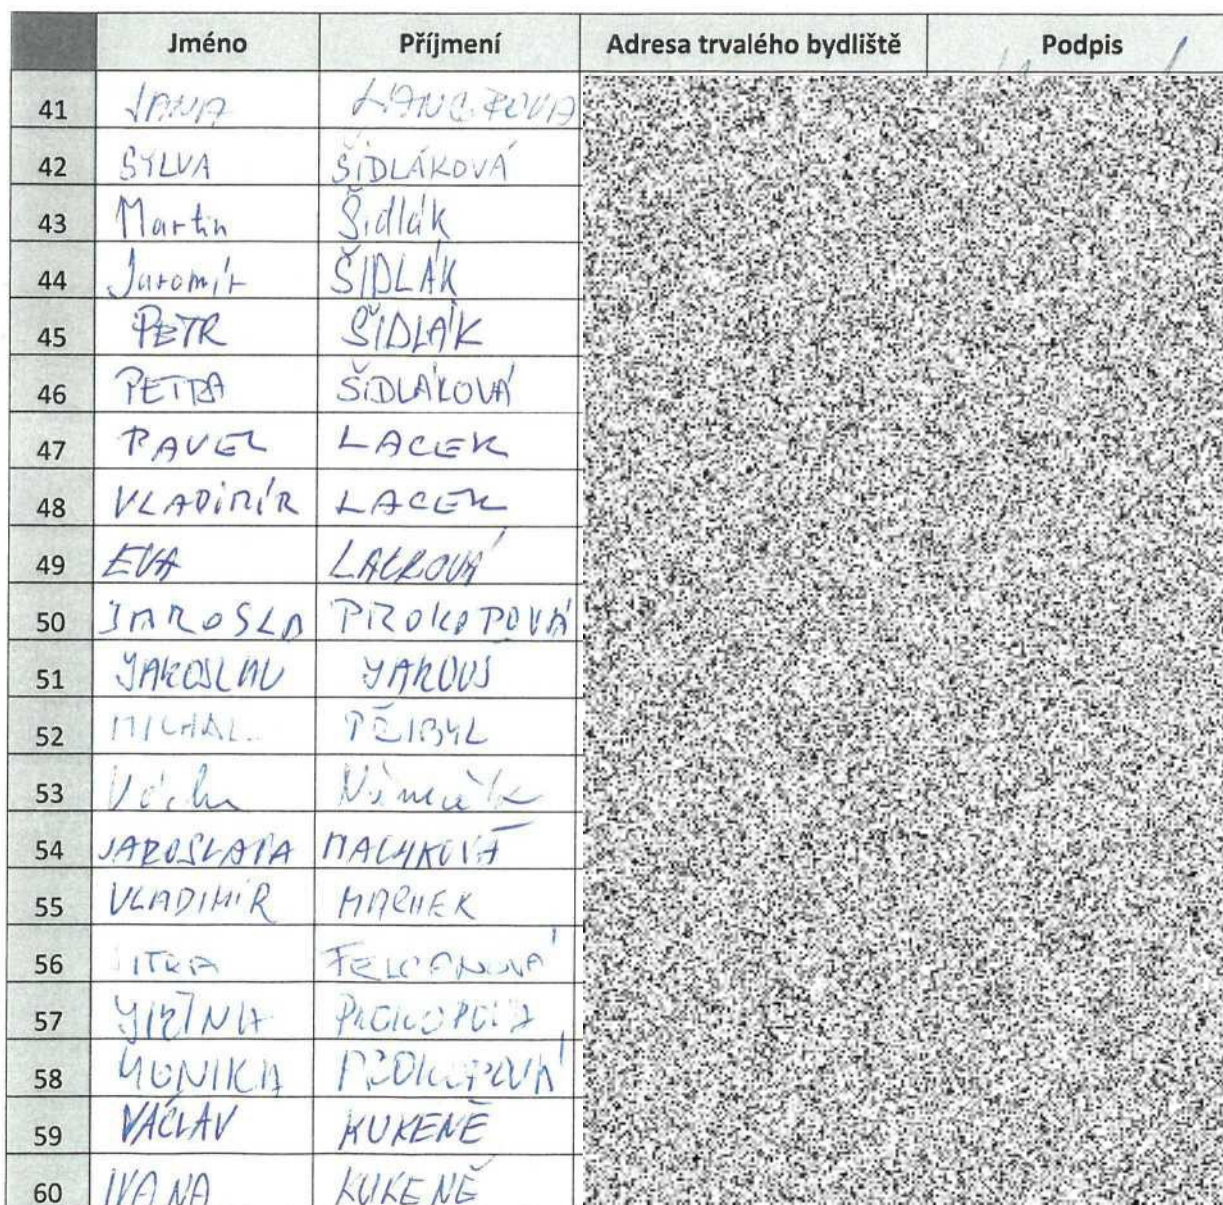 Jméno Příjmení Adresa trvalého bydliště Podpis
41 JANA
42 SYLVA ŠIDLÁKOVÁ
43 Martin Šidlák
44 Jaromír ŠIDLÁK
45 PETR ŠIDLÁK
46 PETRA ŠIDLÁKOVÁ
47 PAVEL LACEK
48 VLADIMÍR LACEK
49 EVA LACKOVÁ
50 JAROSLA PROKOPOVÁ
51 JAROSLAV JAROUŠ
52 MICHAL PŘIBYL
53
54 JAROSLAVA MACHKOVÁ
55 VLADIMÍR
56 JITKA
57 JIŘINA PROKOPOVÁ
58 MONIKA PROKOPOVÁ
59 VÁCLAV KUKENĚ
60 IVANA KUKENĚ